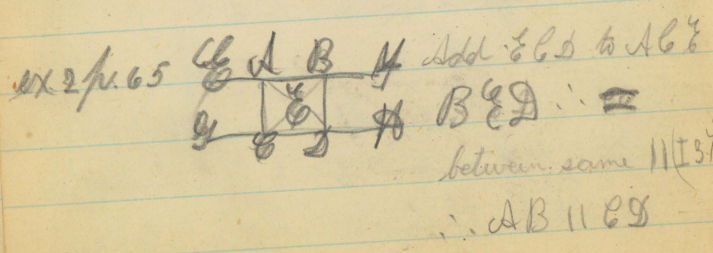 ex. 2 p. 65
A B
E
C D
Add ECD to ACE
BED ∴ =
between same || (I 3
∴ AB || CD